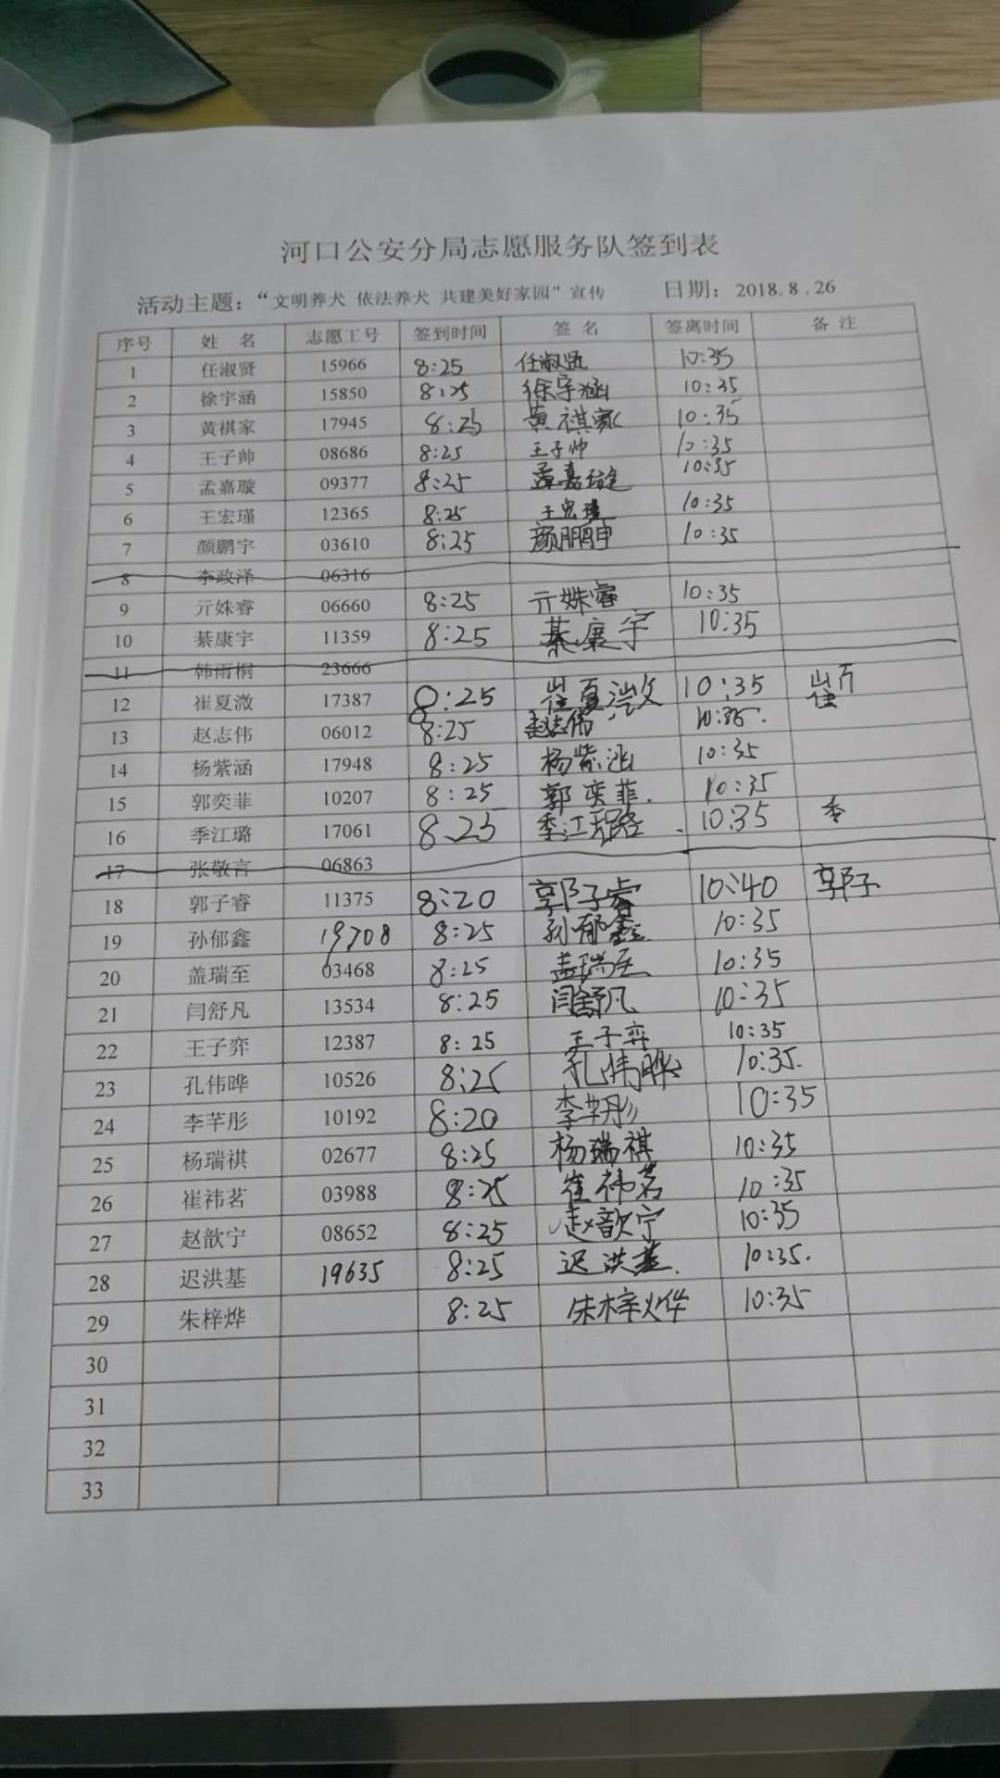 河口公安分局志愿服务队签到表
活动主题：“文明养犬 依法养犬 共建美好家园”宣传 日期：2018.8.26
序号 姓 名 志愿工号 签到时间 签 名 签离时间 备 注
1 任淑贤 15966 8:25 任淑贤 10:35
2 徐宇涵 15850 8:25 徐宇涵 10:35
3 黄祺家 17945 8:25 黄祺家 10:35
4 王子帅 08686 8:25 王子帅 10:35
5 孟嘉璇 09377 8:25 孟嘉璇 10:35
6 王宏瑾 12365 8:25 王宏瑾 10:35
7 颜鹏宇 03610 8:25 10:35
8 李政泽 06316
9 亓姝睿 06660 8:25 亓姝睿 10:35
10 綦康宇 11359 8:25 綦康宇 10:35
11 韩雨桐 23666
12 崔夏溦 17387 8:25 崔夏溦 10:35
13 赵志伟 06012 8:25 赵志伟 10:35.
14 杨紫涵 17948 8:25 杨紫涵 10:35
15 郭奕菲 10207 8:25 郭奕菲. 10:35
16 季江璐 17061 8:25 季江璐. 10:35 季
17 张敬言 06863
18 郭子睿 11375 8:20 郭子睿 10:40 郭子
19 孙郁鑫 19708 8:25 孙郁鑫 10:35
20 盖瑞至 03468 8:25 盖瑞至 10:35
21 闫舒凡 13534 8:25 闫舒凡 10:35
22 王子弈 12387 8:25 王子弈 10:35
23 孔伟晔 10526 8:25 孔伟晔 10:35.
24 李芊彤 10192 8:20 李芊彤 10:35
25 杨瑞祺 02677 8:25 杨瑞祺 10:35
26 崔祎茗 03988 8:25 崔祎茗 10:35
27 赵歆宁 08652 8:25 赵歆宁 10:35
28 迟洪基 19635 8:25 迟洪基. 10:35.
29 朱梓烨 8:25 朱梓烨 10:35
30
31
32
33